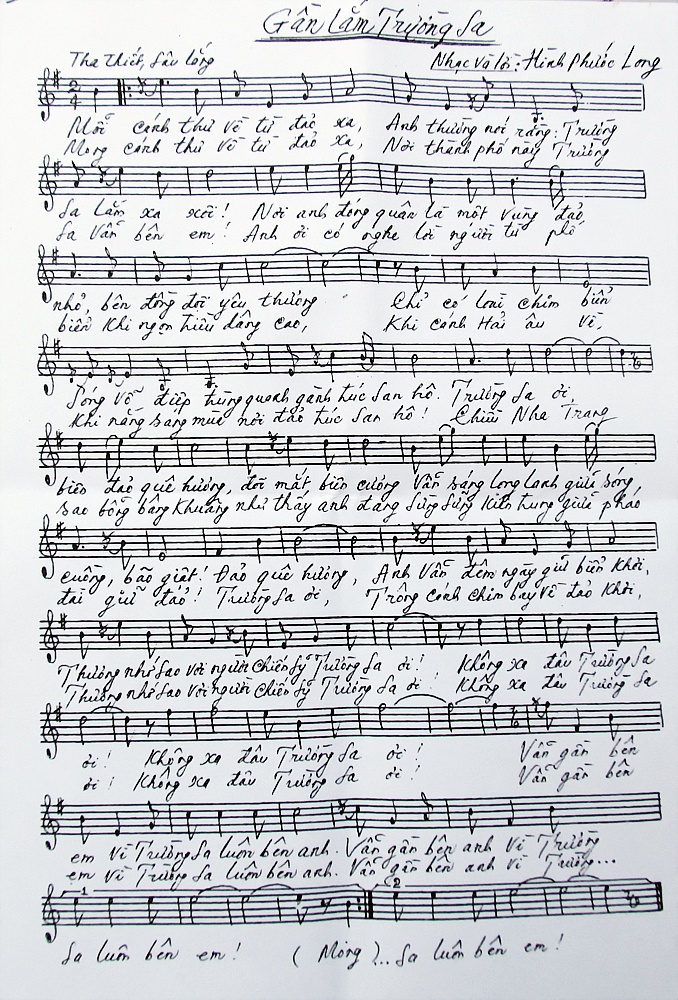 Gần Lắm Trường Sa
Tha thiết, sâu lắng
Nhạc và lời: Hình Phước Long
2
4
Mỗi cánh thư về từ đảo xa, Anh thường nói rằng: Trường
Mong cánh thư về từ đảo xa, Nơi thành phố này Trường
Sa lắm xa xôi! Nơi anh đóng quân là một vùng đảo
Sa vẫn bên em! Anh ơi có nghe lời người từ phố
nhỏ, bên đồng đội yêu thương Chỉ có loài chim biển
biển Khi ngọn triều dâng cao, Khi cánh Hải âu về,
Sóng vỗ điệp trùng quanh gành trúc San hô. Trường Sa ơi,
Khi nắng sang mùa nơi đảo trúc San hô! Chiều Nha Trang
biển đảo quê hương, đôi mắt biên cương vẫn sáng long lanh giữa sóng
sao bỗng bâng khuâng như thấy anh đang sừng sững kiên trung giữa pháo
cuồng, bão giật! Đảo quê hương, Anh vẫn đêm ngày giữ biển khơi,
đài giữ đảo! Trường Sa ơi, Trông cánh chim bay về đảo khơi,
Thương nhớ sao với người chiến sỹ Trường Sa ơi! Không xa đâu Trường Sa
Thương nhớ sao với người chiến sỹ Trường Sa ơi! Không xa đâu Trường Sa
ơi! Không xa đâu Trường Sa ơi! Vẫn gần bên
ơi! Không xa đâu Trường Sa ơi! Vẫn gần bên
em vì Trường Sa luôn bên anh. Vẫn gần bên anh vì Trường
em vì Trường Sa luôn bên anh. Vẫn gần bên anh vì Trường...
1 2
Sa luôn bên em! (Mong)... Sa luôn bên em!